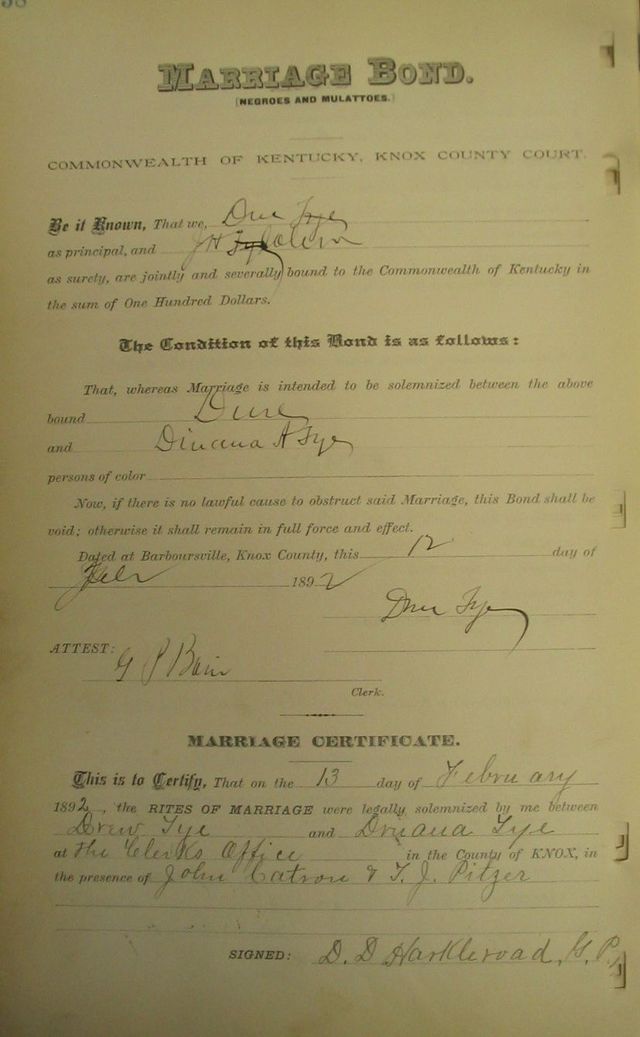 38
MARRIAGE BOND.
(NEGROES AND MULATTOES.)
COMMONWEALTH OF KENTUCKY, KNOX COUNTY COURT.
Be it Known, That we, Tye
as principal, and J H
as surety, are jointly and severally bound to the Commonwealth of Kentucky in
the sum of One Hundred Dollars.
The Condition of this Bond is as follows:
That, whereas Marriage is intended to be solemnized between the above
bound
and A Tye
persons of color
Now, if there is no lawful cause to obstruct said Marriage, this Bond shall be
void; otherwise it shall remain in full force and effect.
Dated at Barboursville, Knox County, this 12 day of
Feb 1892
Tye
ATTEST:
G P Bain
Clerk.
MARRIAGE CERTIFICATE.
This is to Certify, That on the 13 day of February
1892, the RITES OF MARRIAGE were legally solemnized by me between
Drew Tye and Tye
at The Clerks Office in the County of KNOX, in
the presence of John Catron & T. J. Pitzer
SIGNED: D. D Harkleroad, G. P.